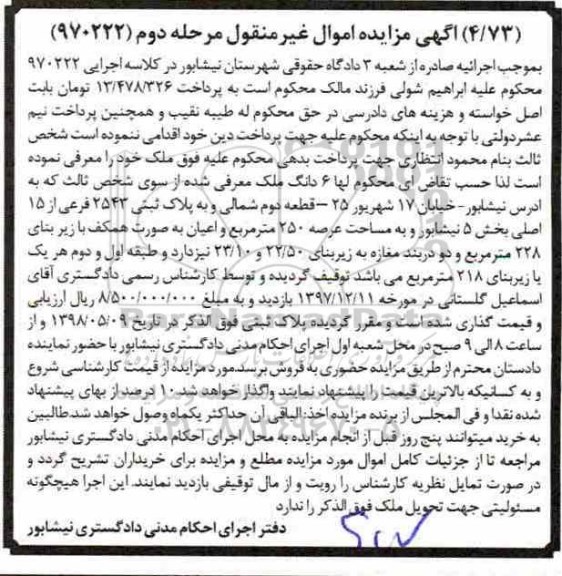 (۴/۷۳) اگهی مزایده اموال غیر منقول مرحله دوم (۹۷۰۲۲۲)
بموجب اجرائیه صادره از شعبه ۳ دادگاه حقوقی شهرستان نیشابور در کلاسه اجرایی ۹۷۰۲۲۲
محکوم علیه ابراهیم شولی فرزند مالک محکوم است به پرداخت ۱۳/۴۷۸/۳۲۶ تومان بابت
اصل خواسته و هزینه های دادرسی در حق محکوم له طیبه نقیب و همچنین پرداخت نیم
عشردولتی با توجه به اینکه محکوم علیه جهت پرداخت دین خود اقدامی ننموده است شخص
ثالث بنام محمود انتظاری جهت پرداخت بدهی محکوم علیه فوق ملک خود را معرفی نموده
است لذا حسب تقاضای محکوم لها ۶ دانگ ملک معرفی شده از سوی شخص ثالث که به
ادرس نیشابور-خیابان ۱۷ شهریور ۲۵ -قطعه دوم شمالی و به پلاک ثبتی ۲۵۴۳ فرعی از ۱۵
اصلی بخش ۵ نیشابور و به مساحت عرصه ۲۵۰ مترمربع و اعیان به صورت همکف با زیر بنای
۲۲۸ مترمربع و دو دربند مغازه به زیربنای ۲۲/۵۰ و ۲۳/۱۰ نیزدارد و طبقه اول و دوم هر یک
یا زیربنای ۲۱۸ مترمربع می باشد توقیف گردیده و توسط کارشناس رسمی دادگستری آقای
اسماعیل گلستانی در مورخه ۱۳۹۷/۱۲/۱۱ بازدید و به مبلغ ۸/۵۰۰/۰۰۰/۰۰۰ ریال ارزیابی
و قیمت گذاری شده است و مقرر گردیده پلاک ثبتی فوق الذکر در تاریخ ۱۳۹۸/۰۵/۰۹ و از
ساعت ۸ الی ۹ صبح در محل شعبه اول اجرای احکام مدنی دادگستری نیشابور با حضور نماینده
دادستان محترم از طریق مزایده حضوری به فروش برسد.مورد مزایده از قیمت کارشناسی شروع
و به کسانیکه بالاترین قیمت را پیشنهاد نمایند واگذار خواهد شد. ۱۰ درصد از بهای پیشنهاد
شده نقدا و فی المجلس از برنده مزایده اخذ الباقی آن حداکثر یکماه وصول خواهد شد.طالبین
به خرید میتوانند پنج روز قبل از انجام مزایده به محل اجرای احکام مدنی دادگستری نیشابور
مراجعه تا از جزئیات کامل اموال مورد مزایده مطلع و مزایده برای خریداران تشریح گردد و
در صورت تمایل نظریه کارشناس را رویت و از مال توقیفی بازدید نمایند. این اجرا هیچگونه
مسئولیتی جهت تحویل ملک فوق الذکر را ندارد
دفتر اجرای احکام مدنی دادگستری نیشابور